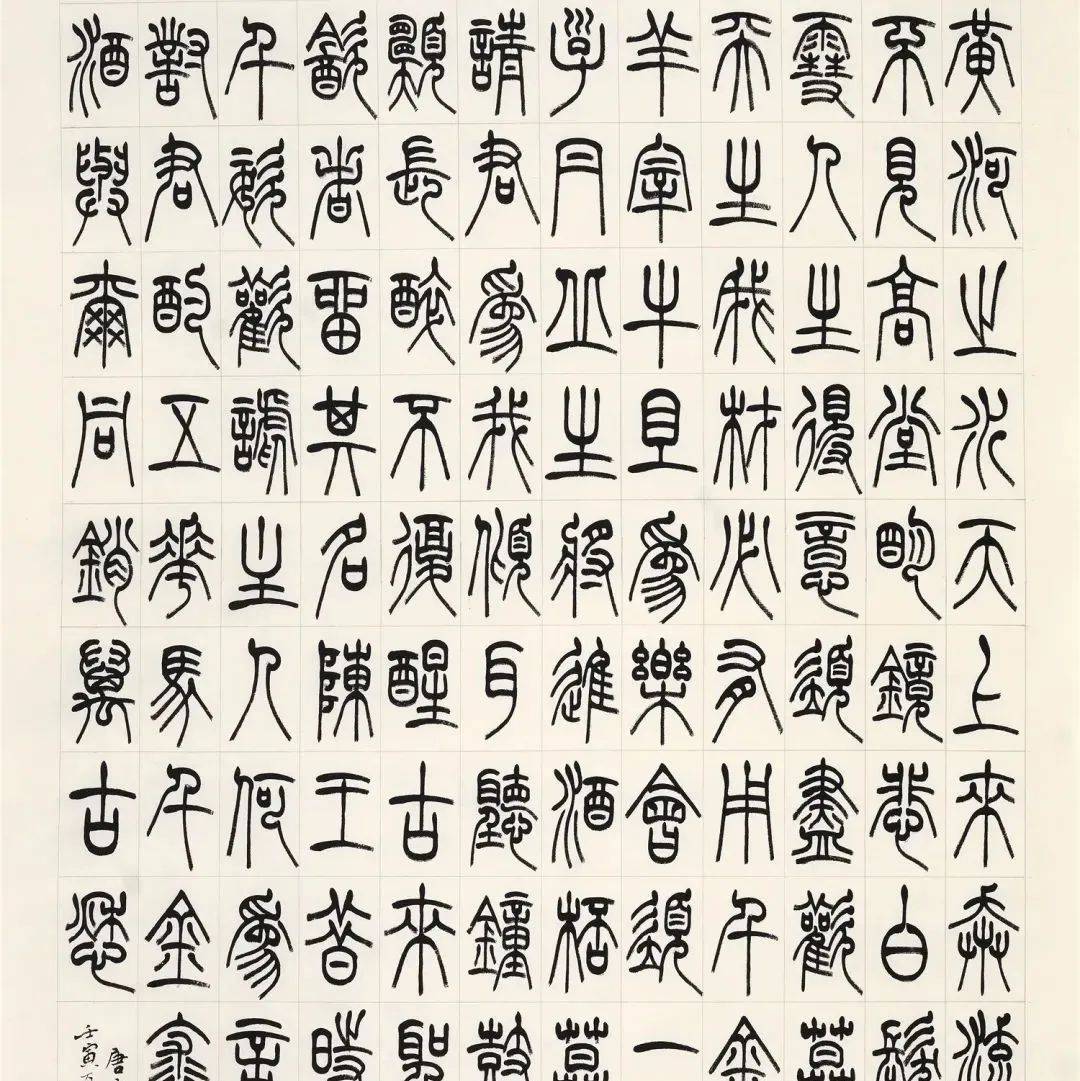 黃河之水天上來奔流
不見高堂明鏡悲白髮
雪人生得意須盡歡莫
天生我材必有用千金
羊宰牛且爲樂會須一
子丹丘生將進酒杯莫
請君爲我傾耳聽鐘鼓
願長醉不復醒古來聖
飲者留其名陳王昔時
千恣歡謔主人何爲言
對君酌五花馬千金裘
酒與爾同銷萬古愁
唐
壬寅